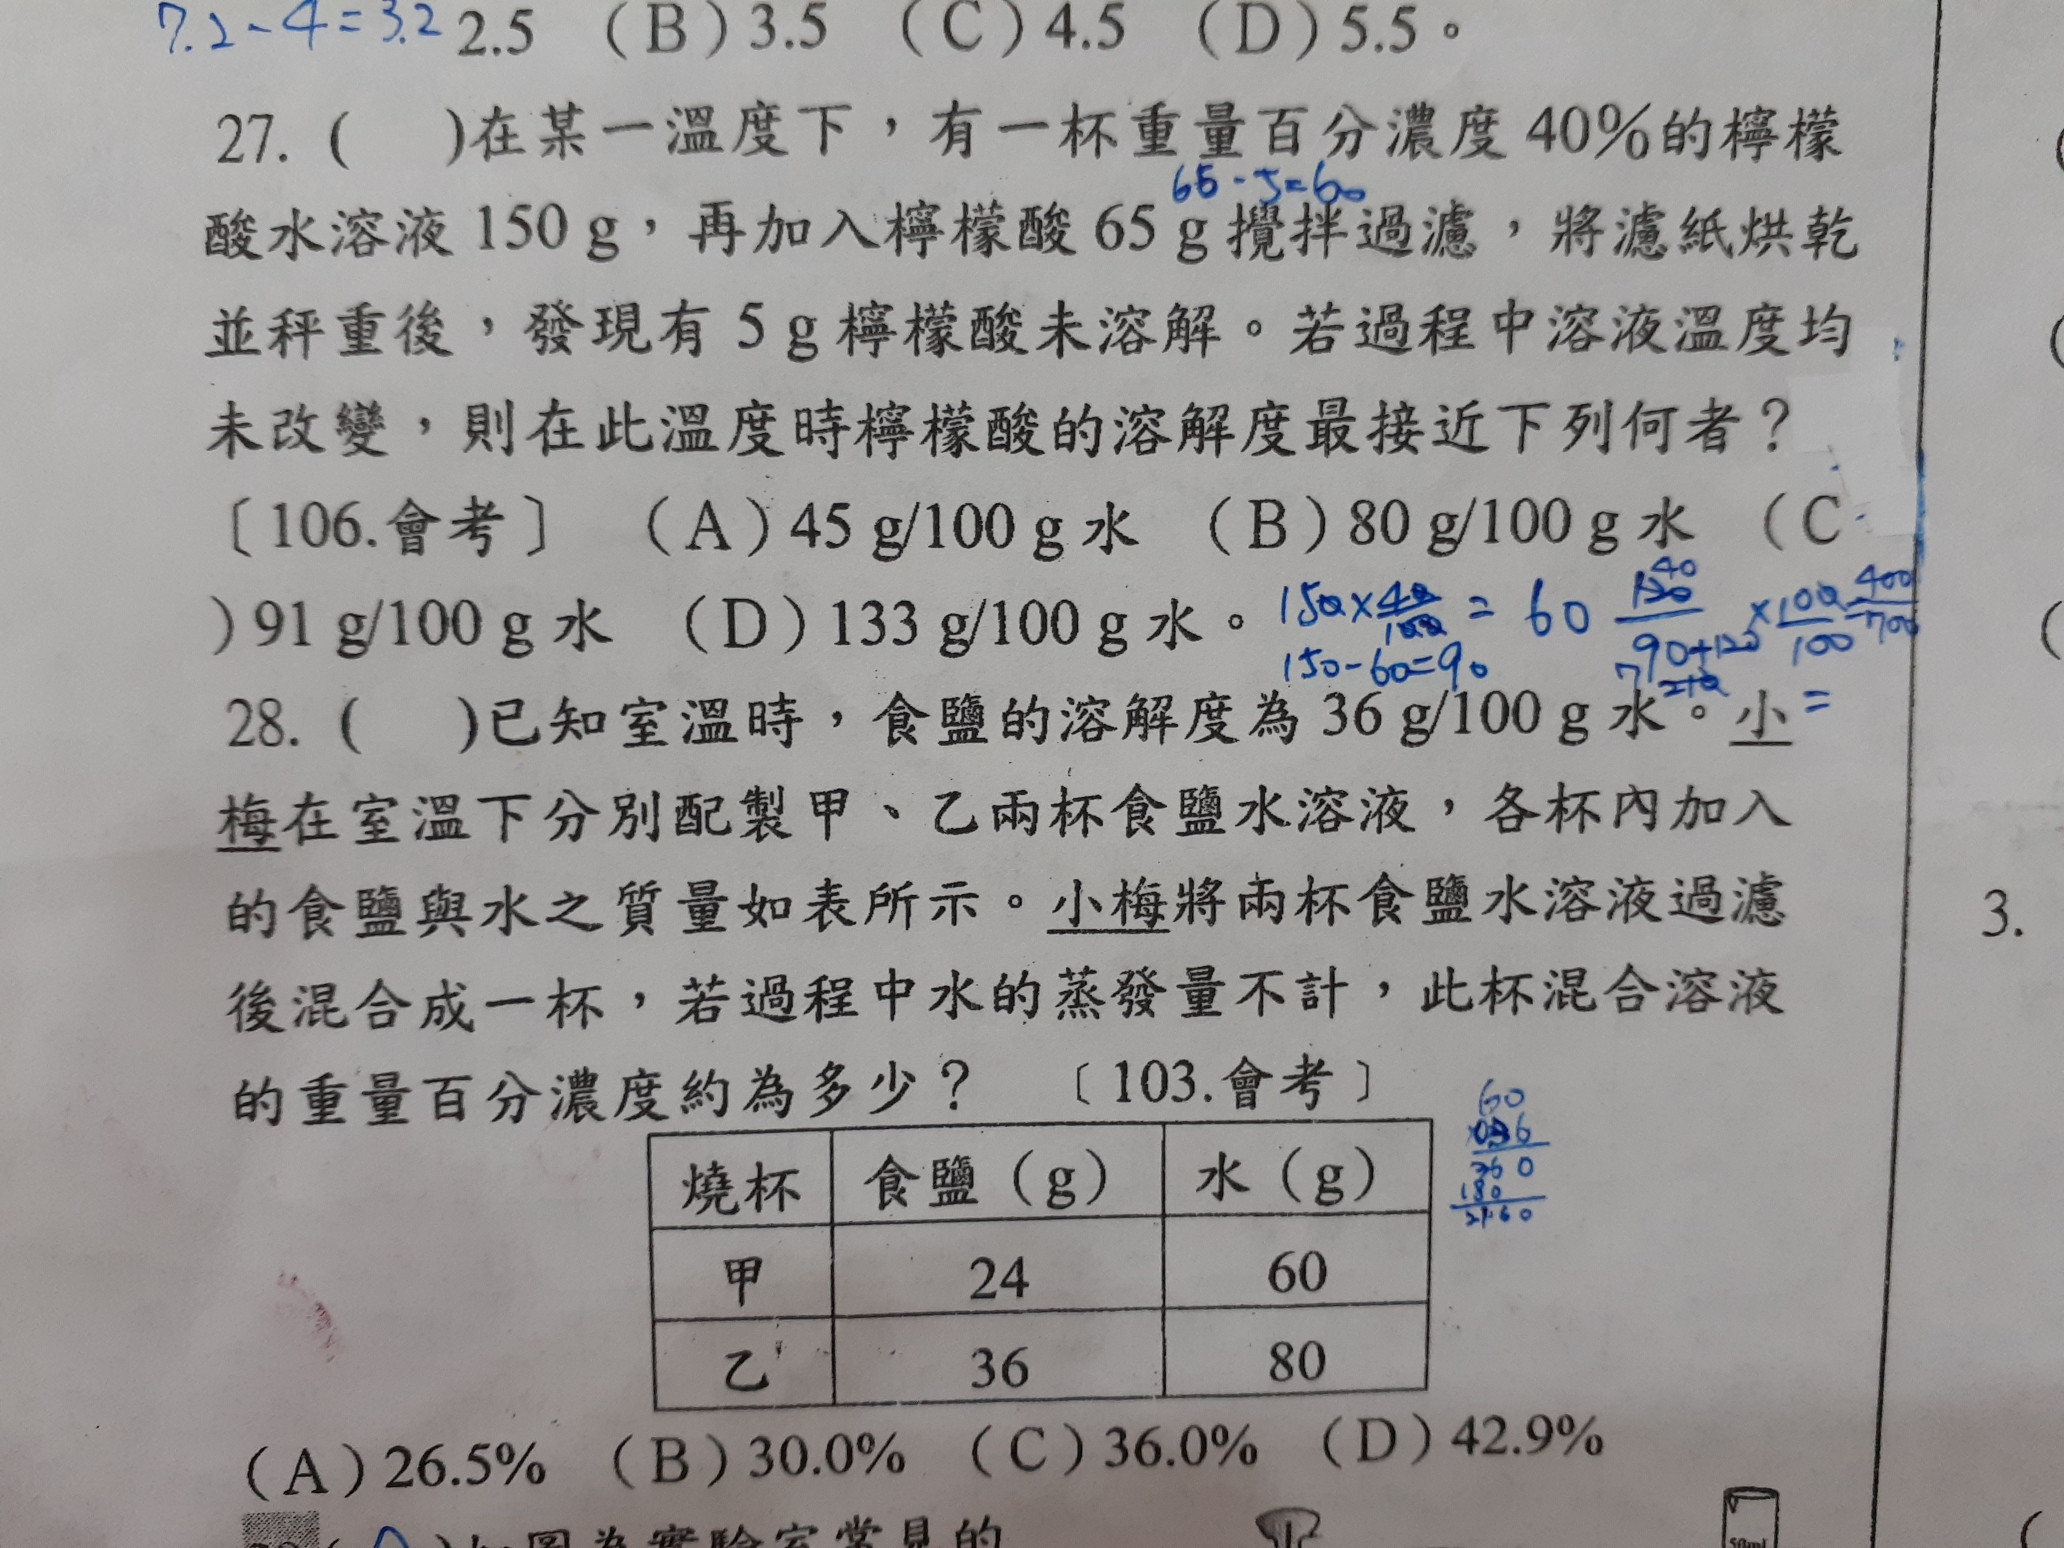 7.2-4=3.2 2.5 （B）3.5 （C）4.5 （D）5.5。
27. (　)在某一溫度下，有一杯重量百分濃度 40%的檸檬
65-5=60
酸水溶液 150 g，再加入檸檬酸 65 g 攪拌過濾，將濾紙烘乾
並秤重後，發現有 5 g 檸檬酸未溶解。若過程中溶液溫度均
未改變，則在此溫度時檸檬酸的溶解度最接近下列何者？
〔106.會考〕 （A）45 g/100 g 水 （B）80 g/100 g 水 （C
）91 g/100 g 水 （D）133 g/100 g 水。
150×40/100=60
150-60=90
28. (　)已知室溫時，食鹽的溶解度為 36 g/100 g 水。小
梅在室溫下分別配製甲、乙兩杯食鹽水溶液，各杯內加入
的食鹽與水之質量如表所示。小梅將兩杯食鹽水溶液過濾
後混合成一杯，若過程中水的蒸發量不計，此杯混合溶液
的重量百分濃度約為多少？ 〔103.會考〕
燒杯 食鹽（g） 水（g）
甲 24 60
乙 36 80
60
360
180
2160
（A）26.5% （B）30.0% （C）36.0% （D）42.9%
3.
50mL